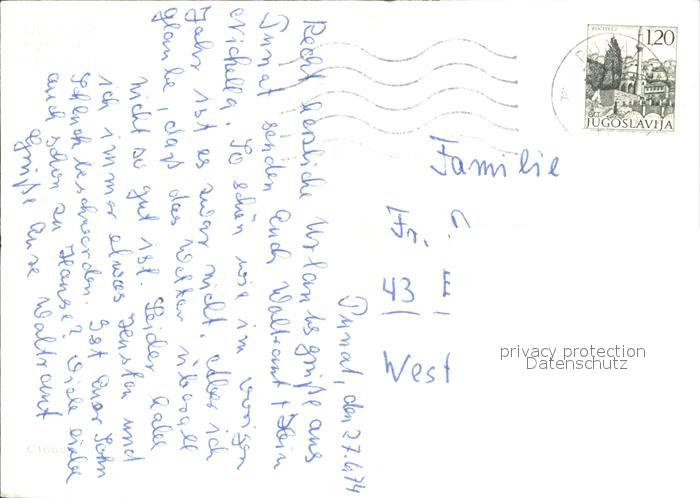 Punat, den 27.6.74
Recht herzliche Urlaubsgrüße aus
Punat senden Euch Waltraut +
Michella. So schön wie im vorigen
Jahr ist es zwar nicht. Aber ich
glaube, daß das Wetter überall
nicht so gut ist. Leider habe
ich immer etwas Husten und
Schluckbeschwerden. Ist Euer Sohn
auch schon zu Hause? Viele liebe
Grüße Eure Waltraut
Familie
Fr.
43 E
West
POČITELJ
1.20
JUGOSLAVIJA
privacy protection
Datenschutz